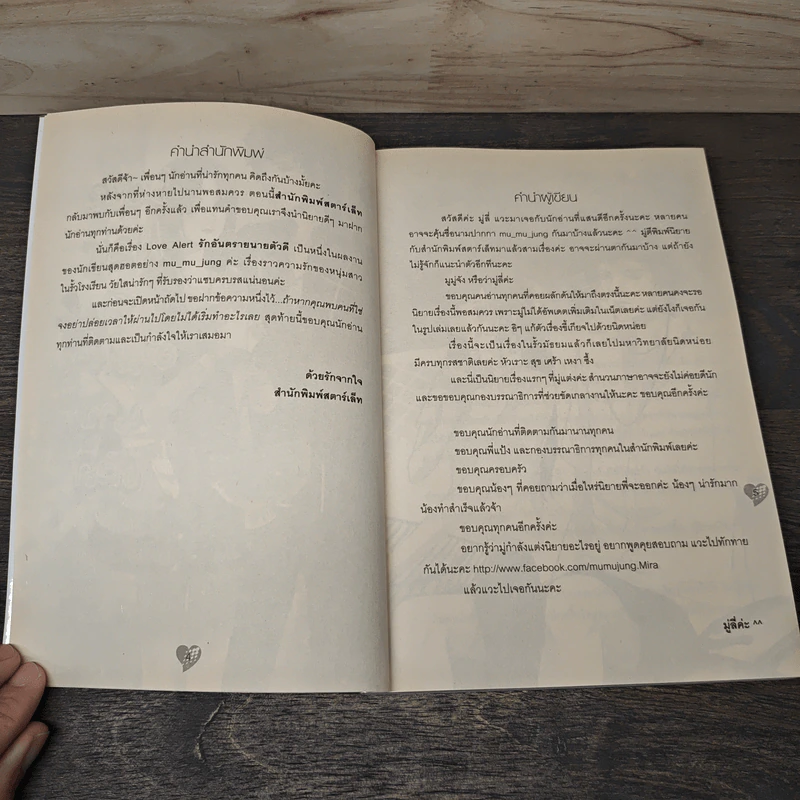 คำนำสำนักพิมพ์
สวัสดีจ้า~ เพื่อนๆ นักอ่านที่น่ารักทุกคน คิดถึงกันบ้างมั้ยคะ
หลังจากที่ห่างหายไปนานพอสมควร ตอนนี้สำนักพิมพ์สตาร์เล็ท
กลับมาพบกับเพื่อนๆ อีกครั้งแล้ว เพื่อแทนคำขอบคุณเราจึงนำนิยายดีๆ มาฝาก
นักอ่านทุกท่านด้วยค่ะ
นั่นก็คือเรื่อง Love Alert รักอันตรายนายตัวดี เป็นหนึ่งในผลงาน
ของนักเขียนสุดฮอตอย่าง mu_mu_jung ค่ะ เรื่องราวความรักของหนุ่มสาว
ในรั้วโรงเรียน วัยใสน่ารักๆ ที่รับรองว่าแซบครบรสแน่นอนค่ะ
และก่อนจะเปิดหน้าถัดไป ขอฝากข้อความหนึ่งไว้...ถ้าหากคุณพบคนที่ใช่
จงอย่าปล่อยเวลาให้ผ่านไปโดยไม่ได้เริ่มทำอะไรเลย สุดท้ายนี้ขอบคุณนักอ่าน
ทุกท่านที่ติดตามและเป็นกำลังใจให้เราเสมอมา
ด้วยรักจากใจ
สำนักพิมพ์สตาร์เล็ท
4
คำนำผู้เขียน
สวัสดีค่ะ มู่ลี่ แวะมาเจอกับนักอ่านที่แสนดีอีกครั้งนะคะ หลายคน
อาจจะคุ้นชื่อนามปากกา mu_mu_jung กันมาบ้างแล้วนะคะ ^^ มู่ตีพิมพ์นิยาย
กับสำนักพิมพ์สตาร์เล็ทมาแล้วสามเรื่องค่ะ อาจจะผ่านตากันมาบ้าง แต่ถ้ายัง
ไม่รู้จักก็แนะนำตัวอีกทีนะคะ
มูมู่จัง หรือว่ามู่ลี่ค่ะ
ขอบคุณคนอ่านทุกคนที่คอยผลักดันให้มาถึงตรงนี้นะคะ หลายคนคงจะรอ
นิยายเรื่องนี้พอสมควร เพราะมู่ไม่ได้อัพเดตเพิ่มเติมในเน็ตเลยค่ะ แต่ยังไงก็เจอกัน
ในรูปเล่มเลยแล้วกันนะคะ อิๆ แก้ตัวเรื่องขี้เกียจไปด้วยนิดหน่อย
เรื่องนี้จะเป็นเรื่องในรั้วมัธยมแล้วก็เลยไปมหาวิทยาลัยนิดหน่อย
มีครบทุกรสชาติเลยค่ะ หัวเราะ สุข เศร้า เหงา ซึ้ง
และนี่เป็นนิยายเรื่องแรกๆ ที่มู่แต่งค่ะ สำนวนภาษาอาจจะยังไม่ค่อยดีนัก
และขอขอบคุณกองบรรณาธิการที่ช่วยขัดเกลางานให้นะคะ ขอบคุณอีกครั้งค่ะ
ขอบคุณนักอ่านที่ติดตามกันมานานทุกคน
ขอบคุณพี่แป้ง และกองบรรณาธิการทุกคนในสำนักพิมพ์เลยค่ะ
ขอบคุณครอบครัว
ขอบคุณน้องๆ ที่คอยถามว่าเมื่อไหร่นิยายพี่จะออกค่ะ น้องๆ น่ารักมาก
น้องทำสำเร็จแล้วจ้า
ขอบคุณทุกคนอีกครั้งค่ะ
อยากรู้ว่ามู่กำลังแต่งนิยายอะไรอยู่ อยากพูดคุยสอบถาม แวะไปทักทาย
กันได้นะคะ http://www.facebook.com/mumujung.Mira
แล้วแวะไปเจอกันนะคะ
มู่ลี่ค่ะ ^^
5